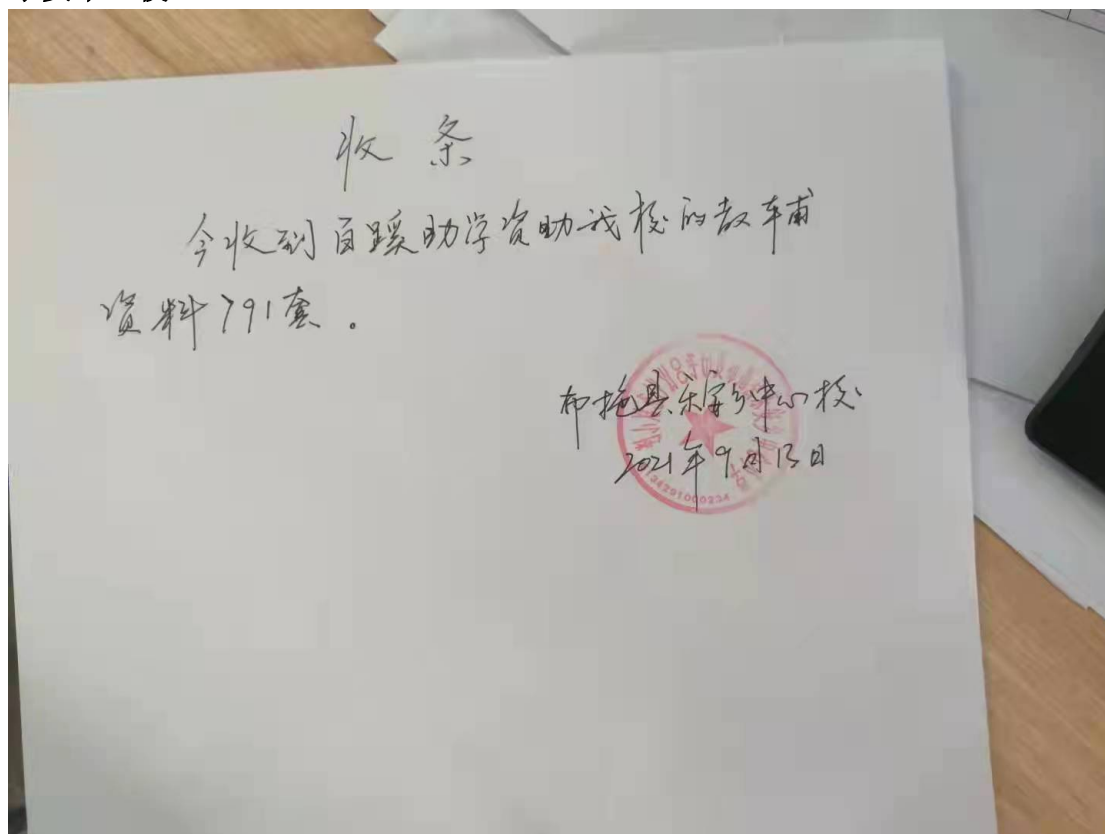 收条
今收到百蹊助学资助我校的教辅
资料791套。
布拖县乐安乡中心校
2021年9月13日